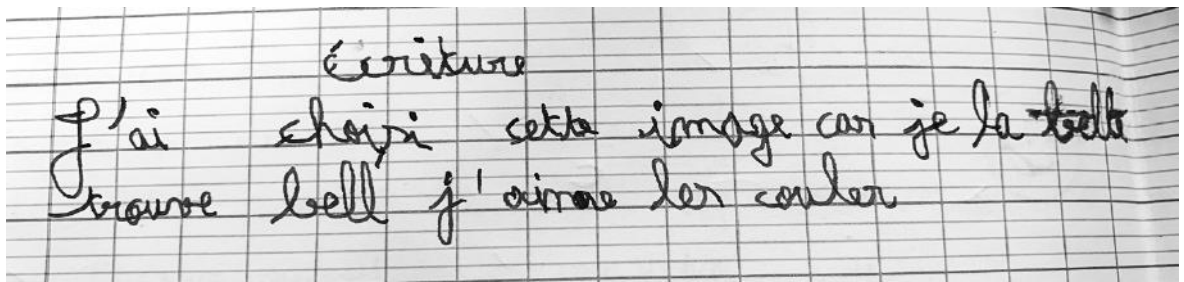 écriture
J'ai choisi cette image car je la
trouve bell j'aime les couler